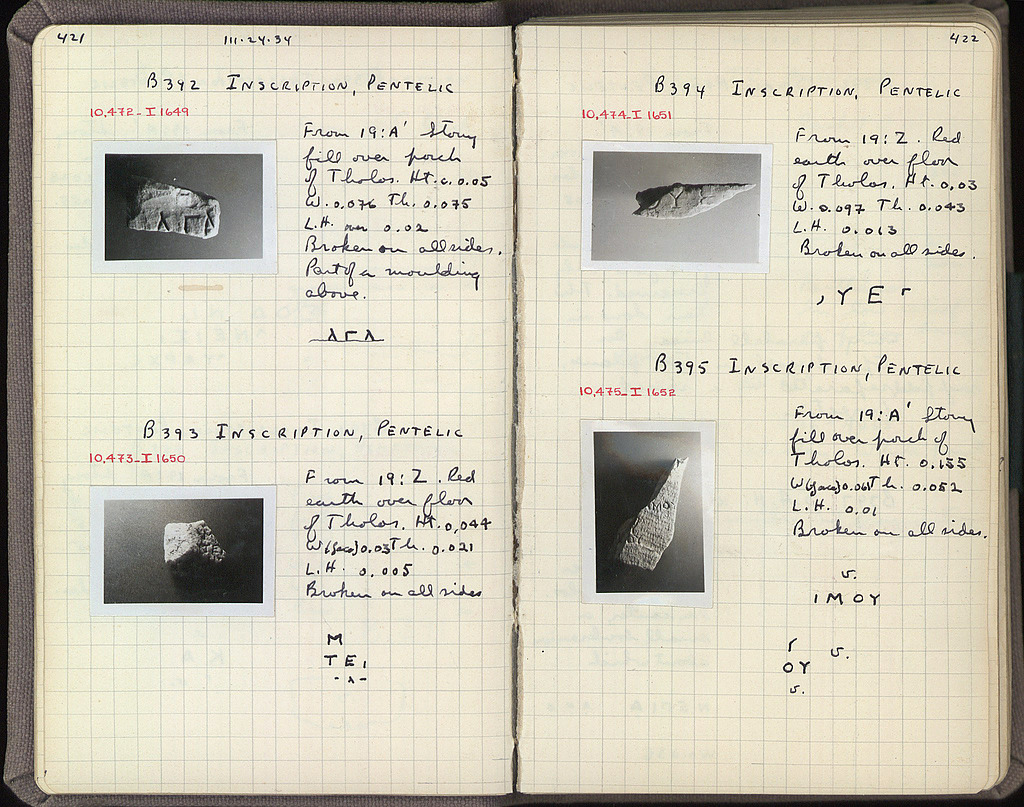 421
111·24·34
B392 INSCRIPTION, PENTELIC
10,472_I 1649
From 19:A' Stony
fill over porch
of Tholos. Ht. c. 0.05
W. 0.076 Th. 0.075
L.H. over 0.02
Broken on all sides.
Part of a moulding
above.
B393 INSCRIPTION, PENTELIC
10,473_I 1650
From 19:Z. Red
earth over floor
of Tholos. Ht. 0,044
W (face) 0.03 Th. 0.021
L.H. 0.005
Broken on all sides
Μ
ΤΕΙ
-λ-
422
B394 INSCRIPTION, PENTELIC
10,474_I 1651
From 19:Z. Red
earth over floor
of Tholos. Ht. 0,03
W. 0.097 Th. 0.043
L.H. 0.013
Broken on all sides.
, Υ Ε Γ
B395 INSCRIPTION, PENTELIC
10,475_I 1652
From 19:A' Stony
fill over porch of
Tholos. Ht. 0.155
W (face) 0.061 Th. 0.052
L.H. 0.01
Broken on all sides.
v.
ΙΜΟΥ
Γ v.
ΟΥ
v.